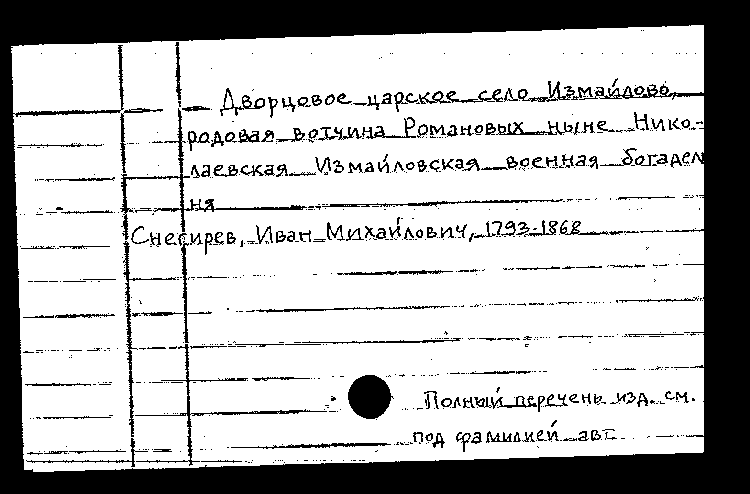 Дворцовое царское село Измайлово,
родовая вотчина Романовых ныне Нико-
лаевская Измайловская военная богадел
ня
Снегирев, Иван Михайлович, 1793-1868
Полный перечень изд. см.
под фамилией авт.